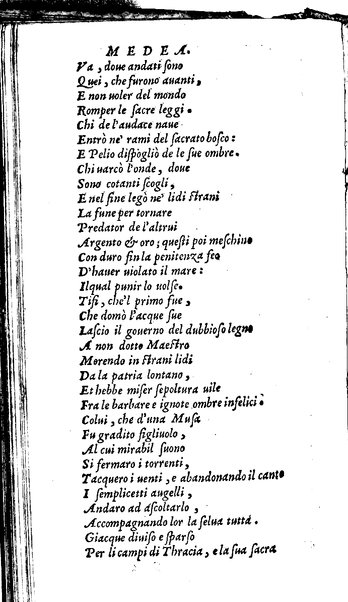 MEDEA.
Va, doue andati sono
Quei, che furono auanti,
E non uoler del mondo
Romper le sacre leggi.
Chi de l'audace naue
Entrò ne' rami del sacrato bosco:
E Pelio dispogliò de le sue ombre.
Chi uarcò l'onde, doue
Sono cotanti scogli,
E nel fine legò ne' lidi strani
La fune per tornare
Predator de l'altrui
Argento & oro; questi poi meschino
Con duro fin la penitenza feo
D'hauer uiolato il mare:
Ilqual punir lo uolse.
Tifi, che'l primo fue,
Che domò l'acque sue
Lascio il gouerno del dubbioso legno
A non dotto Maestro
Morendo in strani lidi
Da la patria lontano,
Et hebbe miser sepoltura uile
Fra le barbare e ignote ombre infelici.
Colui, che d'una Musa
Fu gradito figliuolo,
Al cui mirabil suono
Si fermaro i torrenti,
Tacquero i uenti, e abandonando il canto
I semplicetti augelli,
Andaro ad ascoltarlo,
Accompagnando lor la selua tutta.
Giacque diuiso e sparso
Per li campi di Thracia, e la sua sacra